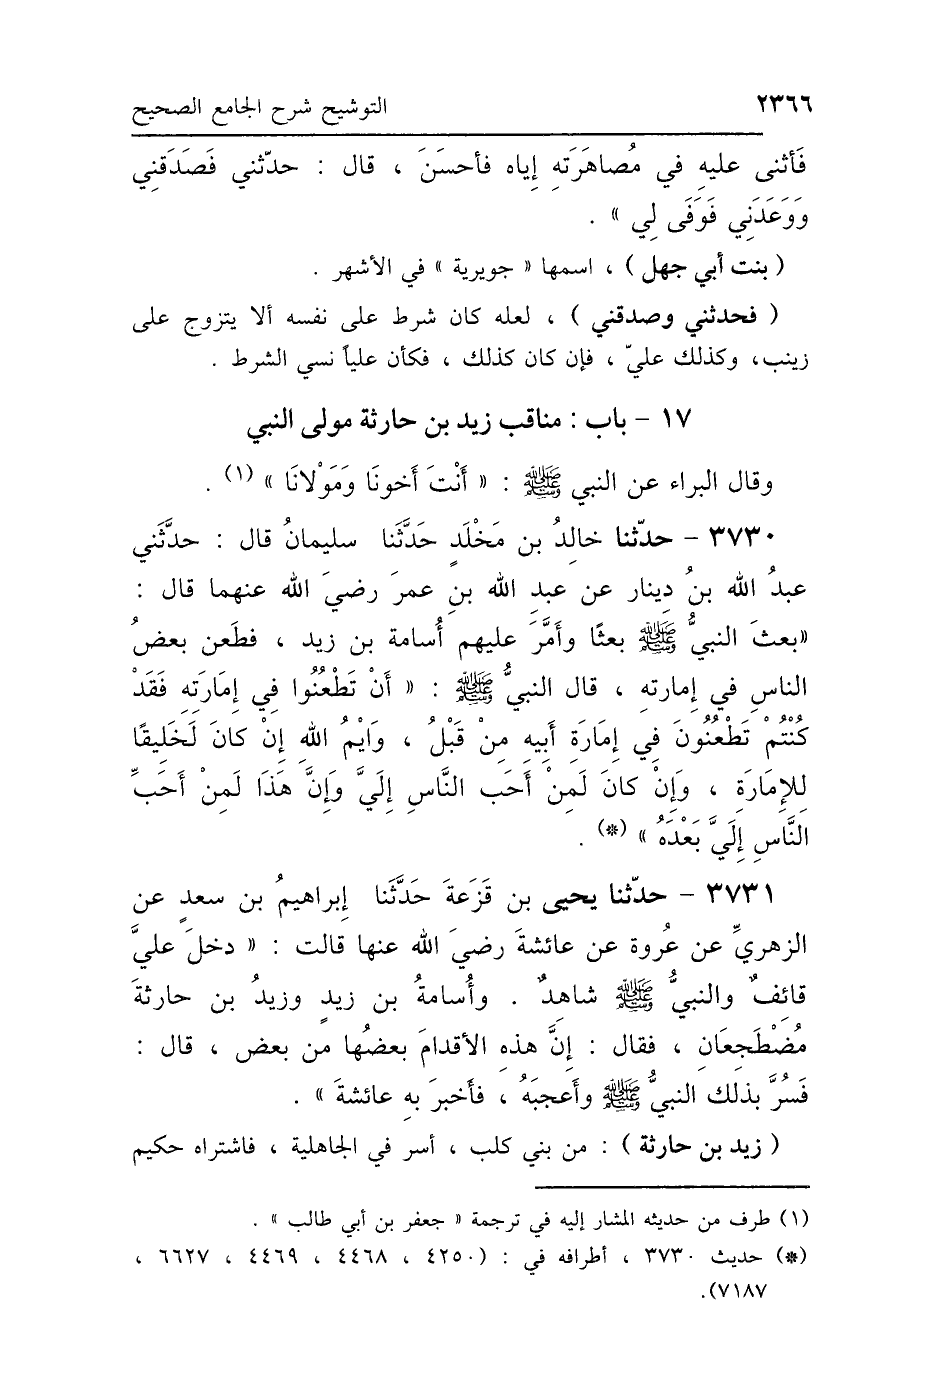 ٢٣٦٦ التوشيح شرح الجامع الصحيح
فَأثنى عليهِ في مُصاهَرَتهِ إياه فأحسَنَ ، قال : حدّثني فَصَدَقنِي
وَوَعَدَنِي فَوَفَى لِي » .
( بنت أبي جهل ) ، اسمها « جويرية » في الأشهر .
( فحدثني وصدقني ) ، لعله كان شرط على نفسه ألا يتزوج على
زينب، وكذلك عليّ ، فإن كان كذلك ، فكأن علياً نسي الشرط .
١٧ - باب : مناقب زيد بن حارثة مولى النبي
وقال البراء عن النبي ﷺ : « أَنْتَ أَخونَا وَمَوْلانَا » (١) .
٣٧٣٠ - حدّثنا خالِدُ بن مَخْلَدٍ حَدَّثَنا سليمانُ قال : حدَّثَني
عبدُ الله بنُ دِينار عن عبدِ الله بنِ عمرَ رضيَ الله عنهما قال :
«بعثَ النبيُّ ﷺ بعثًا وأَمَّرَ عليهم أُسامة بن زيد ، فطَعن بعضُ
الناسِ في إمارتهِ ، قال النبيُّ ﷺ : « أَنْ تَطْعُنُوا فِي إمَارَتِهِ فَقَدْ
كُنْتُمْ تَطْعُنُونَ فِي إِمَارَةِ أَبِيهِ مِنْ قَبْلُ ، وَايْمُ اللهِ إِنْ كانَ لَخَلِيقًا
للإِمَارَةِ ، وَإِنْ كانَ لَمِنْ أَحَب النَّاسِ إِلَيَّ وَإِنَّ هَذَا لَمِنْ أَحَبِّ
النَّاسِ إِلَيَّ بَعْدَهُ » (*) .
٣٧٣١ - حدّثنا يحيى بن قَزَعةَ حَدَّثَنا إبراهيمُ بن سعدٍ عن
الزهريِّ عن عُروة عن عائشةَ رضيَ الله عنها قالت : « دخلَ عليَّ
قائفٌ والنبيُّ ﷺ شاهدٌ . وأُسامةُ بن زيدٍ وزيدُ بن حارثةَ
مُضْطَجِعَانِ ، فقال : إنَّ هذهِ الأقدامَ بعضُها من بعض ، قال :
فَسُرَّ بذلك النبيُّ ﷺ وأَعجبَهُ ، فأَخبرَ بهِ عائشةَ » .
( زيد بن حارثة ) : من بني كلب ، أسر في الجاهلية ، فاشتراه حكيم
(١) طرف من حديثه المشار إليه في ترجمة « جعفر بن أبي طالب » .
(*) حديث ٣٧٣٠ ، أطرافه في : (٤٢٥٠ ، ٤٤٦٨ ، ٤٤٦٩ ، ٦٦٢٧ ،
٧١٨٧).